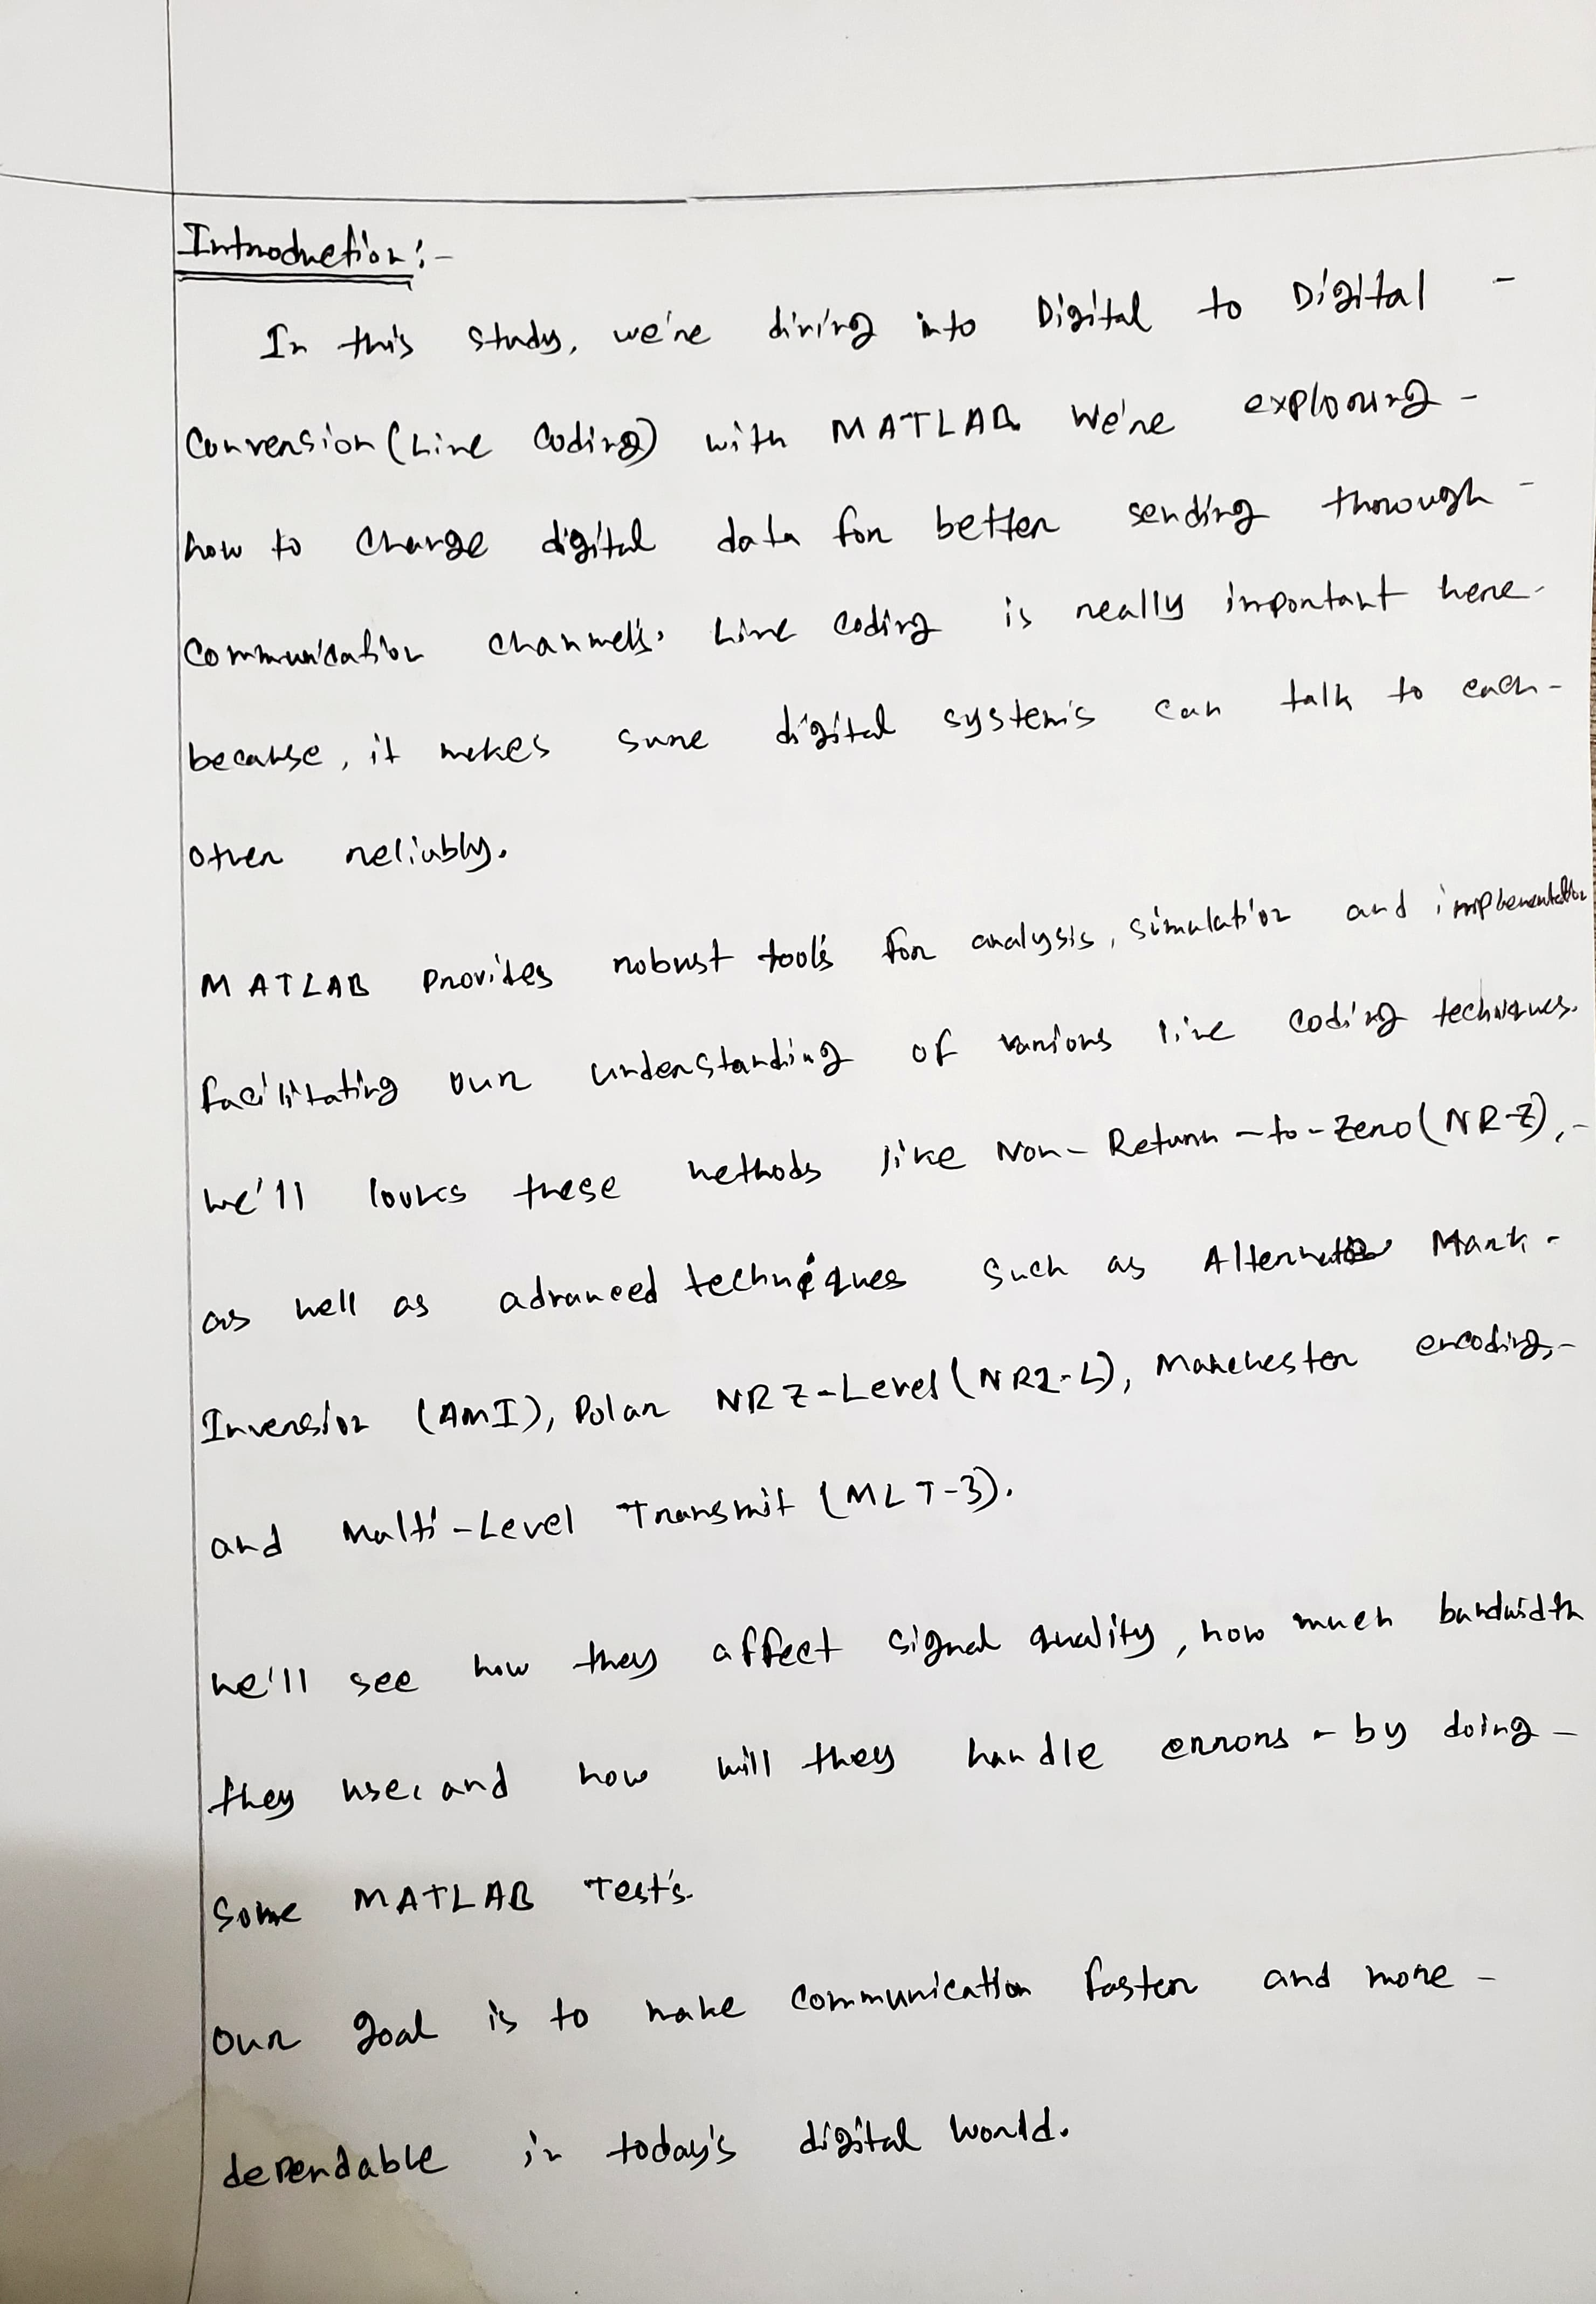 Introduction:-
In this study, we're diving into Digital to Digital -
Conversion (Line Coding) with MATLAB. We're exploring -
how to change digital data for better sending through -
Communication channel's. Line coding is really important here -
because, it makes sure digital system's can talk to each -
other reliably.
MATLAB provides robust tool's for analysis, simulation and implementation
facilitating our understanding of various line coding techniques.
We'll looks these methods like Non-Return-to-Zero (NR-Z), -
as well as advanced techniques such as Alternate Mark -
Inversion (AMI), Polar NRZ-Level (NRZ-L), Manchester encoding, -
and Multi-Level Transmit (MLT-3).
We'll see how they affect signal quality, how much bandwidth
they use, and how will they handle errors - by doing -
Some MATLAB Test's.
Our goal is to make communication faster and more -
dependable in today's digital world.